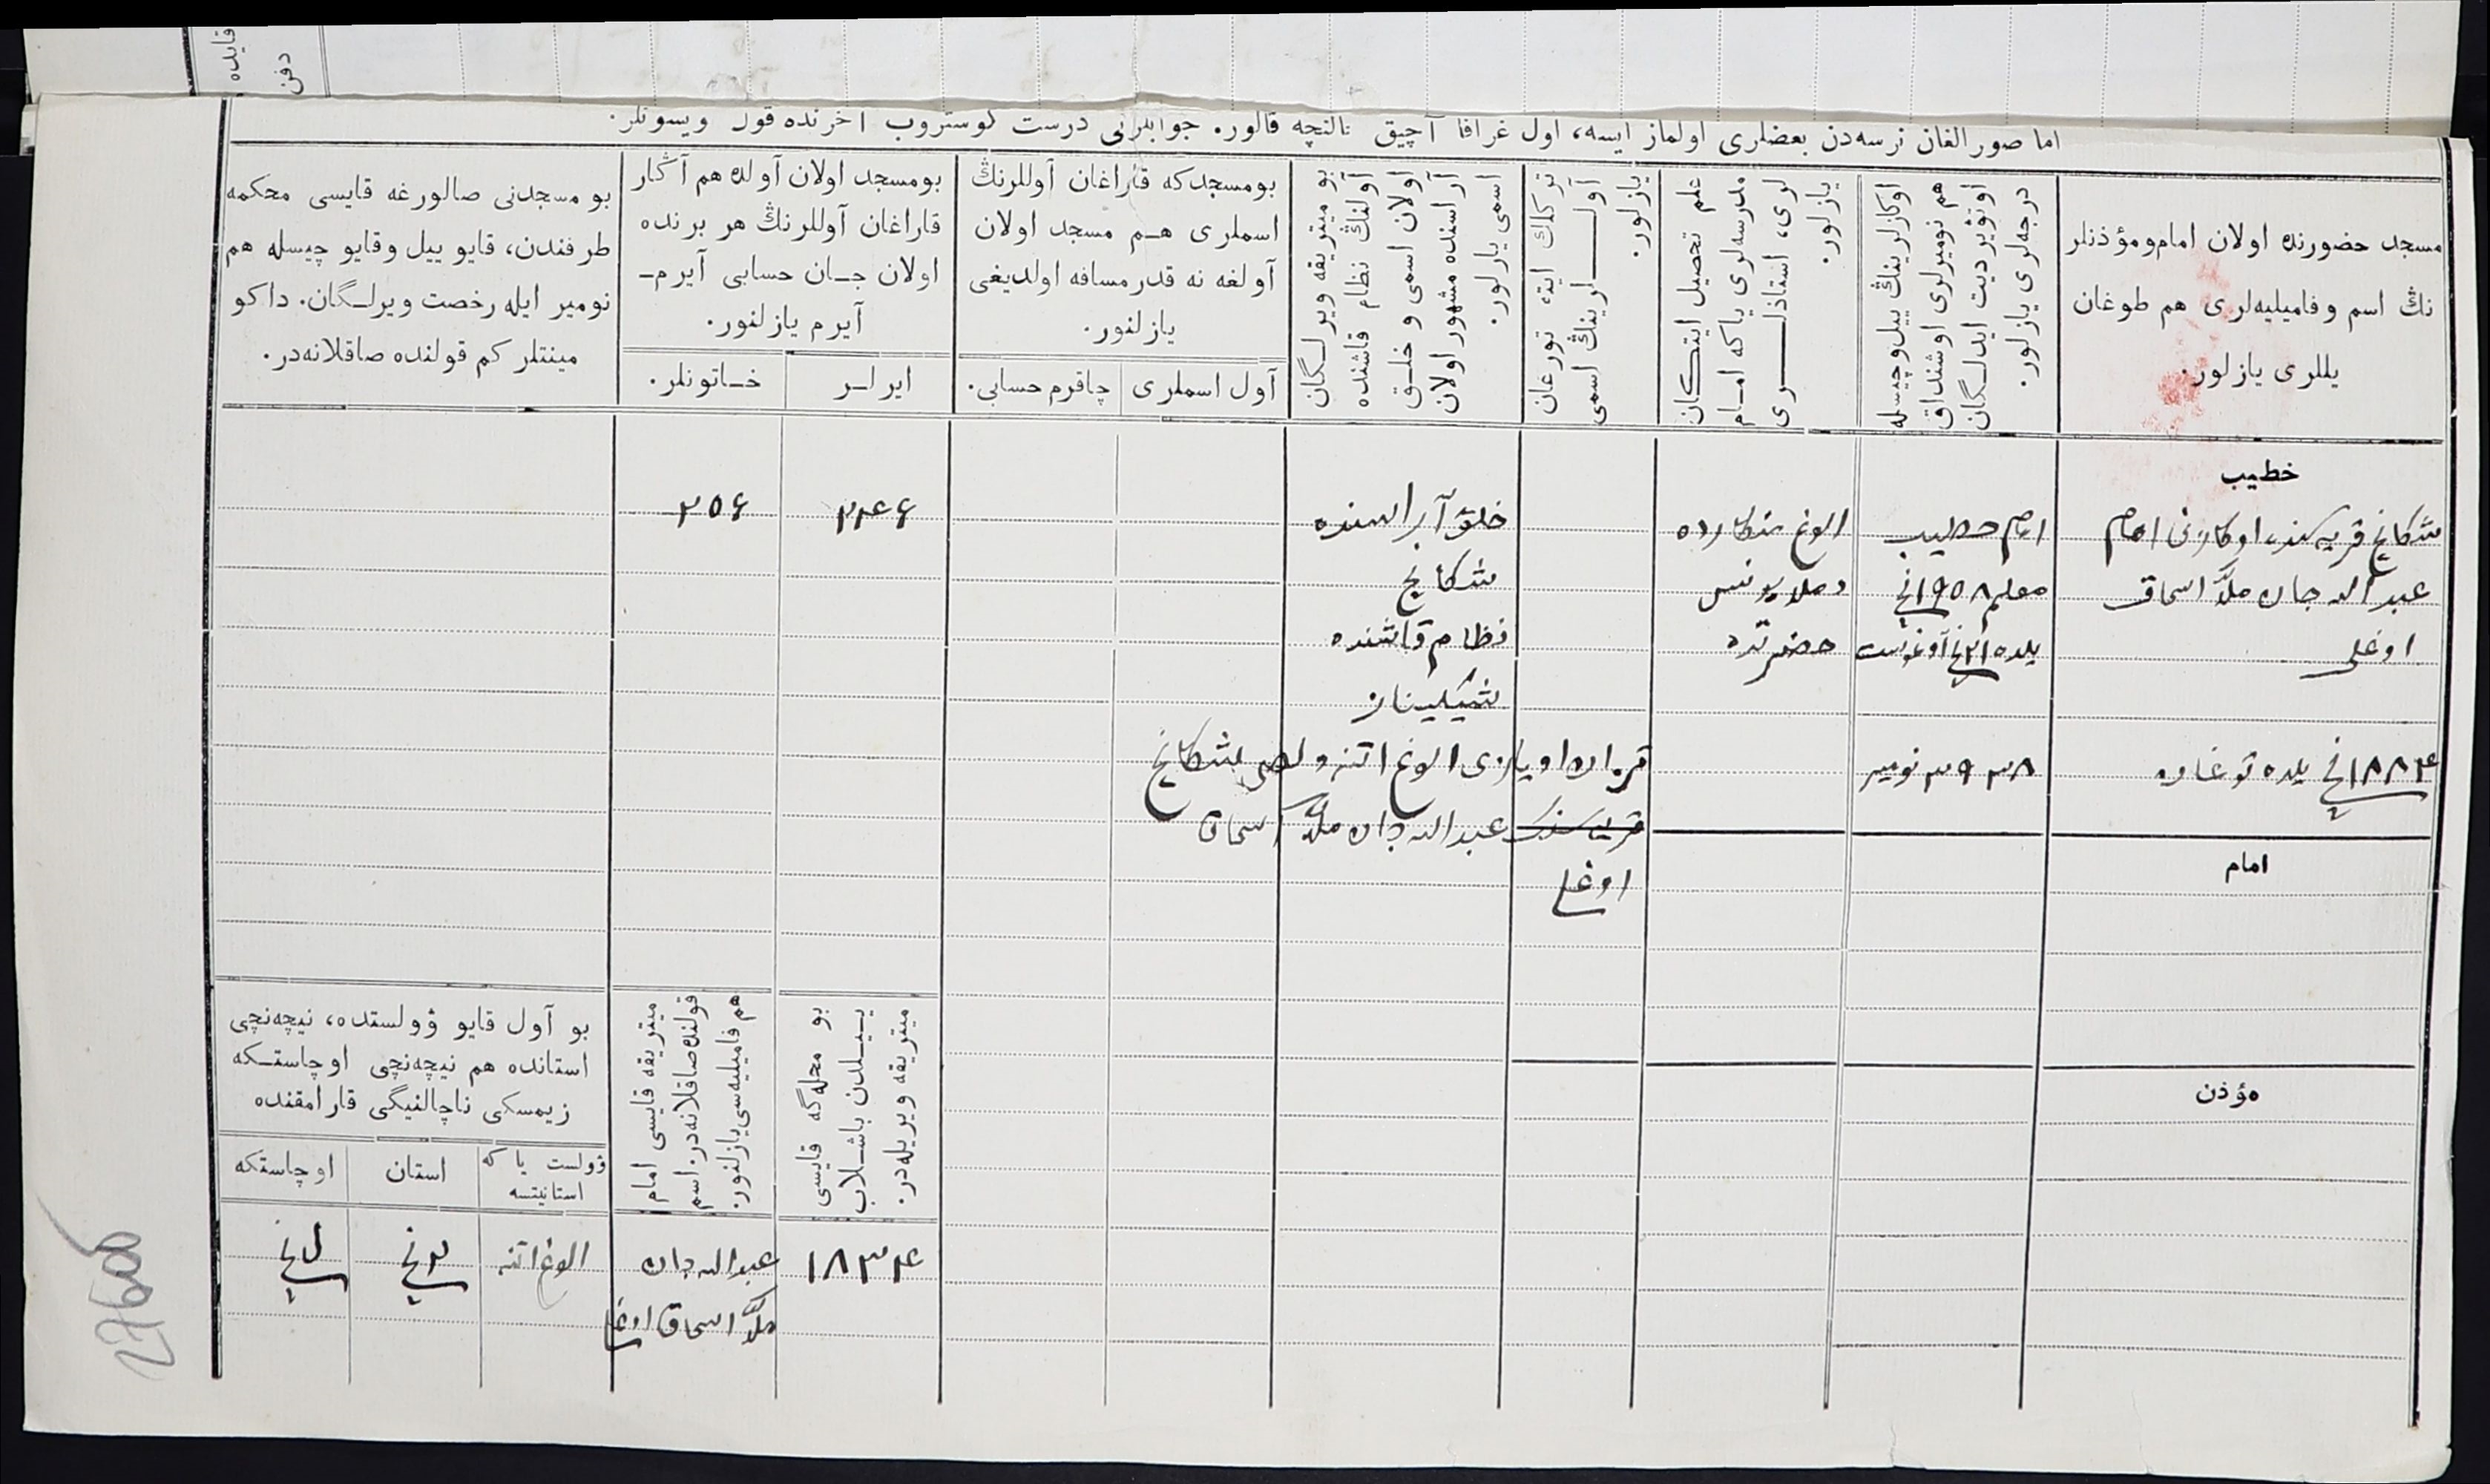 قایده
دفن
اما صورالغان نرسه‌دن بعضلری اولماز ایسه، اول غرافا آچیق قالنچه قالور. جوابلرنی درست کوستروب آخرنده قول ویسونلر.
مسجد حضورنده اولان امام ومؤذنلر
نڭ اسم وفامیلیه‌لری هم طوغان
یللری یازلور.
اوکازلرینڭ ییل وچیسله
هم نومیرلری اوشنداق
اوتؤیردیت ایدلـگان
درجه‌لری یازلور.
علم تحصیل ایتکان
مدرسه‌لری یاکه امام
لری، استاذلری
یازلور.
ترکلك ایته تورغان
آوللرینڭ اسمی
یازلور.
بو میتریقه ویرلـگان
آولنڭ نظام قاشنده
اولان اسمی و خلـق
آراسنده مشهور اولان
اسمی یازلور.
بومسجدکه قاراغان آوللرنڭ
اسملری هـم مسجد اولان
آولغه نه قدر مسافه اولدیغی
یازلنور.
آول اسملری
چاقرم حسابی.
بومسجد اولان آولده هم آڭار
قاراغان آوللرنڭ هر برنده
اولان جـان حسابی آیرم
آیرم یازلنور.
ایرلـر
خـاتونلر.
بو مسجدنی صالورغه قایسی محکمه
طرفندن، قایو ییل وقایو چیسله هم
نومیر ایله رخصت ویرلـگان. داکو
مینتلر کم قولنده صاقلانه‌در.
خطیب
شکانچ قریه سنده اوکازنی امام
عبدالله جان ملّا اسحاق
اوغلی
۱۸۸۴نچی یلده توغان
امام خطیب
معلم ۱۹۰۸نچی
یلده ۲۱نچی آوغوست
۳۹۳۸ نومیر
الوغ منکارده
دملا یونس
حضرتده
خلق آراسنده
شکانچ
نظام قاشنده
قزان اویازی الوغ اتنه ولصی شکانچ
قریه سنک عبدالله جان ملّا اسحاق
اوغلی
۲۴۶
۲۵۶
امام
مؤذن
بو محله‌گه قایسی
ییـلدن باشـلاب
میتریقه ویریله‌در.
میتریقه قایسی امام
قولنده صاقلانه‌در: اسم
هم فامیلیه‌سی یازلنور.
بو آول قایو ۋولستده، نیچه‌نچی
استانده هم نیچه‌نچی اوچاستـکه
زیمسکی ناچالنیگی قارامقنده
ۋولست یا که
استانیتسه
استان
اوچاستکه
۱۸۳۴
عبدالله جان
ملّا اسحاق اوغلی
الوغ اتنه
۳نچی